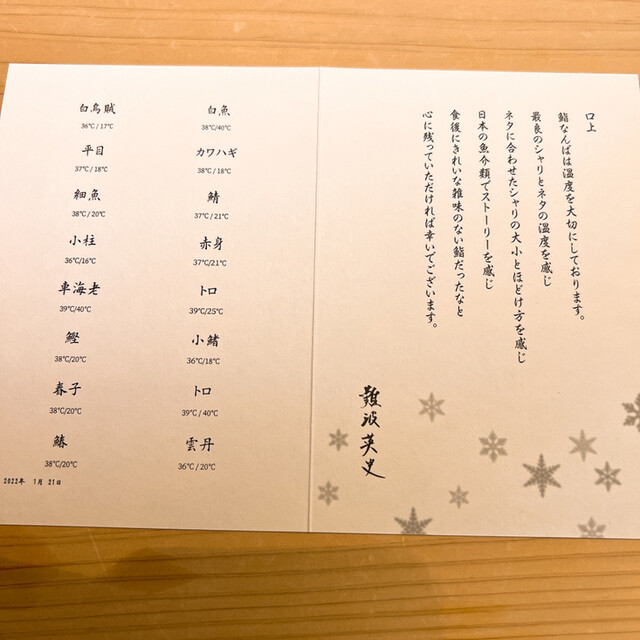 口上
鮨なんばは温度を大切にしております。
最良のシャリとネタの温度を感じ
ネタに合わせたシャリの大小とほどけ方を感じ
日本の魚介類でストーリーを感じ
食後にきれいな雑味のない鮨だったなと
心に残っていただければ幸いでございます。
難波英史
白烏賊
36℃ / 17℃
平目
37℃ / 18℃
細魚
38℃ / 20℃
小柱
36℃/16℃
車海老
39℃/40℃
鰹
38℃/20℃
春子
38℃/20℃
鰆
38℃/20℃
白魚
38℃/40℃
カワハギ
38℃ / 18℃
鯖
37℃ / 21℃
赤身
37℃/21℃
トロ
39℃/25℃
小鰭
36℃/18℃
トロ
39℃ / 40℃
雲丹
36℃ / 20℃
2022年 1月 21日